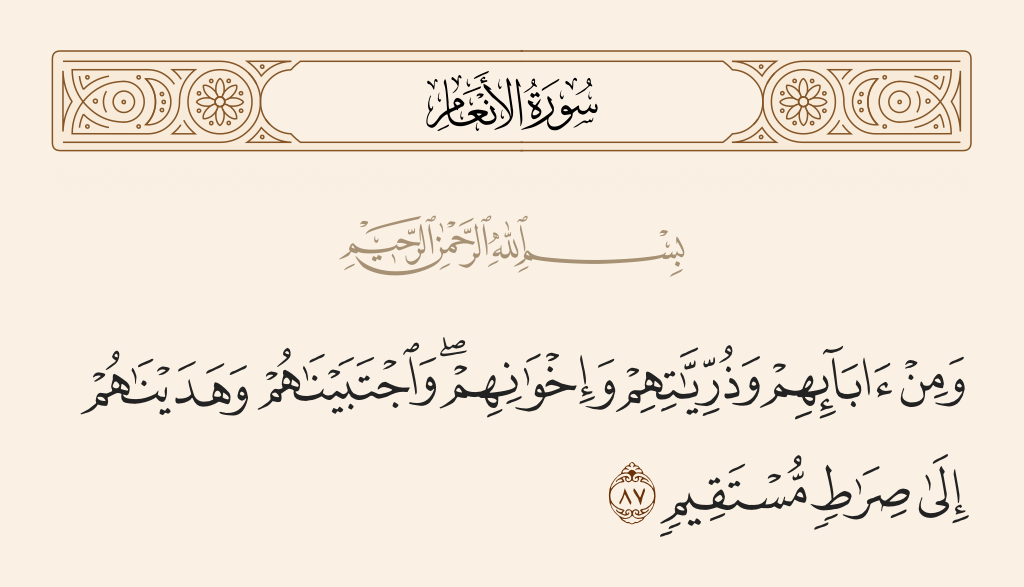 سُورَةُ الأَنْعَامِ
بِسْمِ ٱللَّهِ ٱلرَّحْمَٰنِ ٱلرَّحِيمِ
وَمِنْ ءَابَآئِهِمْ وَذُرِّيَّٰتِهِمْ وَإِخْوَٰنِهِمْ ۖ وَٱجْتَبَيْنَٰهُمْ وَهَدَيْنَٰهُمْ
إِلَىٰ صِرَٰطٍ مُّسْتَقِيمٍ ٨٧